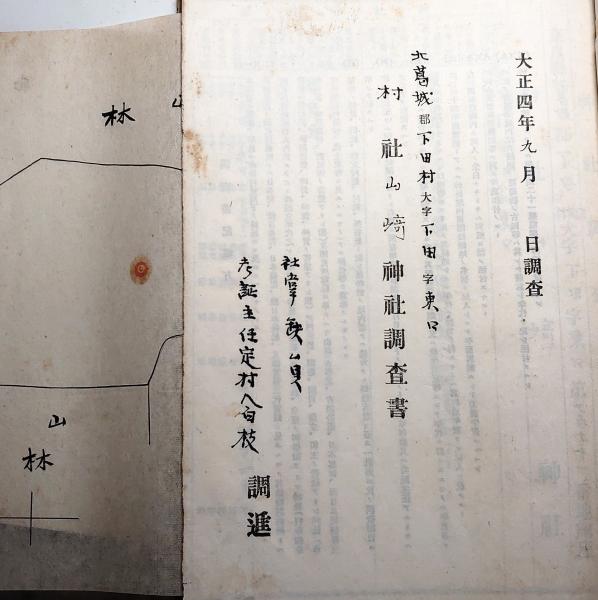 大正四年九月 日調査
北葛城郡下田村大字下田字東口
村社山﨑神社調査書
社掌 欠員
考証主任定村八百枝 調進
山林
山林